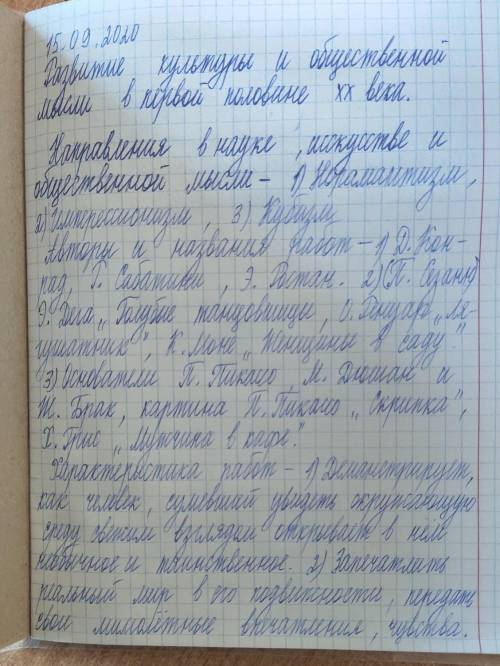 15.09.2020
Развитие культуры и общественной
мысли в первой половине XX века.
Направления в науке, искусстве и
общественной мысли – 1) Норамантизм,
2) Импрессионизм, 3) Кубизм
Авторы и названия работ – 1) Д. Кон-
рад, Г. Сабатини, Э. Ростан. 2) (П. Сезанн)
Э. Дега „Голубые танцовщицы, О. Ренуар „Ля-
гушатник", К. Моне „Женщины в саду".
3) Основатели П. Пикасо, М. Дюшан и
Ж. Брак, картина П. Пикасо „Скрипка",
Х. Грис „Мужчина в кафе".
Характеристика работ – 1) Деманстрирует,
как человек, сумевший увидеть окружающую
среду свежим взглядом открывает в нем
необычное и таинственное. 2) Запечатлить
реальный мир в его подвижности, передать
свои мимолётные впечатления, чувства.